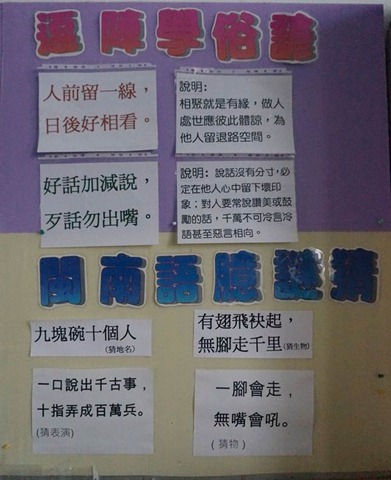 逗陣學俗諺
人前留一線，
日後好相看。
說明：
相聚就是有緣，做人
處世應彼此體諒，為
他人留退路空間。
好話加減說，
歹話勿出嘴。
說明：說話沒有分寸，必
定在他人心中留下壞印
象；對人要常說讚美或鼓
勵的話，千萬不可冷言冷
語甚至惡言相向。
閩南話臆謎猜
九塊碗十個人
(猜地名)
有翅飛袂起，
無腳走千里(猜生物)
一口說出千古事，
十指弄成百萬兵。
(猜表演)
一腳會走，
無嘴會吼。
(猜物)